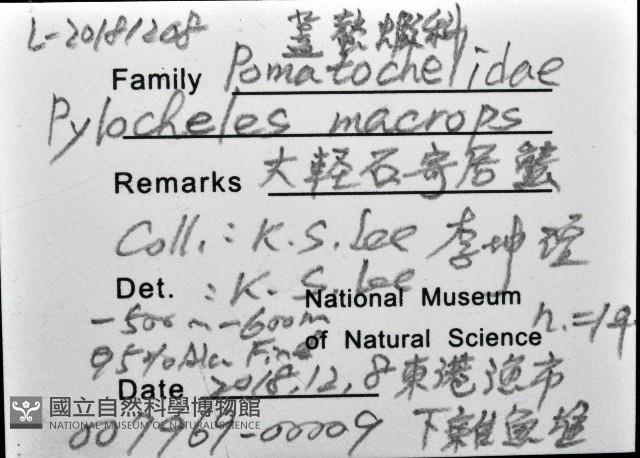 L-20181208
蓋螯蝦科
Family Pomatochelidae
Pylocheles macrops
Remarks 大軽石寄居蟹
Coll.: K.S. Lee 李坤瑄
Det. : K. S. Lee
National Museum
-500m-600m
of Natural Science n.=19
95% Alc.
Date 2018.12.8 東港漁市
國立自然科學博物館
NATIONAL MUSEUM OF NATURAL SCIENCE
007969-00009 下雜魚堆